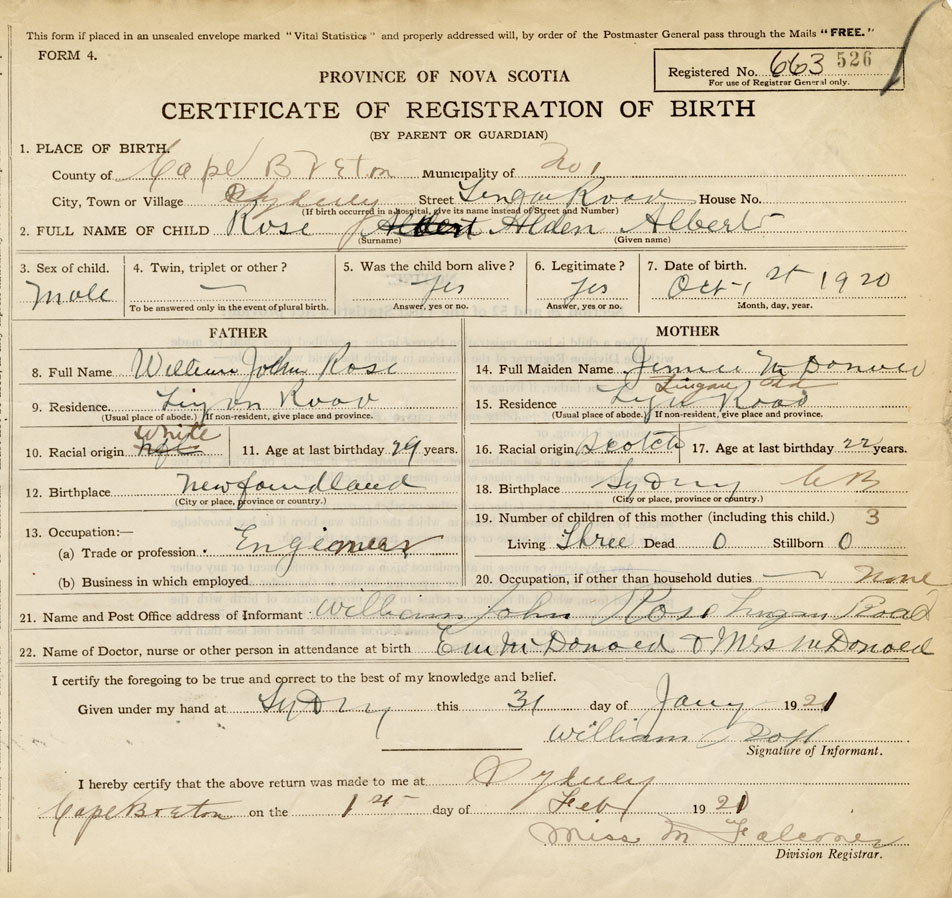 This form if placed in an unsealed envelope marked "Vital Statistics" and properly addressed will, by order of the Postmaster General pass through the Mails "FREE."
FORM 4.
Registered No. 663 526
For use of Registrar General only.
PROVINCE OF NOVA SCOTIA
CERTIFICATE OF REGISTRATION OF BIRTH
(BY PARENT OR GUARDIAN)
1. PLACE OF BIRTH.
County of Cape Breton Municipality of No 1
City, Town or Village Sydney Street Lingan Road House No.
(If birth occurred in a hospital, give its name instead of Street and Number)
2. FULL NAME OF CHILD Rose Alden Albert
(Surname) (Given name)
3. Sex of child. 4. Twin, triplet or other? 5. Was the child born alive? 6. Legitimate? 7. Date of birth.
Male — yes yes Oct 1st 1920
To be answered only in the event of plural birth. Answer, yes or no. Answer, yes or no. Month, day, year.
FATHER
8. Full Name William John Rose
9. Residence Road
(Usual place of abode.) If non-resident, give place and province.
10. Racial origin White 11. Age at last birthday 29 years.
12. Birthplace newfoundland
(City or place, province or country.)
13. Occupation:—
(a) Trade or profession Engineer
(b) Business in which employed
MOTHER
14. Full Maiden Name Jennie
Lingan Rd
15. Residence Road
(Usual place of abode.) If non-resident, give place and province.
16. Racial origin Scotch 17. Age at last birthday 22 years.
18. Birthplace Sydny C B
(City or place, province or country.)
19. Number of children of this mother (including this child.) 3
Living Three Dead 0 Stillborn 0
20. Occupation, if other than household duties — none
21. Name and Post Office address of Informant William John Rose Lingan Road
22. Name of Doctor, nurse or other person in attendance at birth & Mrs McDonald
I certify the foregoing to be true and correct to the best of my knowledge and belief.
Given under my hand at Sydny this 31 day of Jany 1921
William
Signature of Informant.
I hereby certify that the above return was made to me at Sydney
Cape Breton on the 1st day of Feb 1921
Miss M Falconer
Division Registrar.